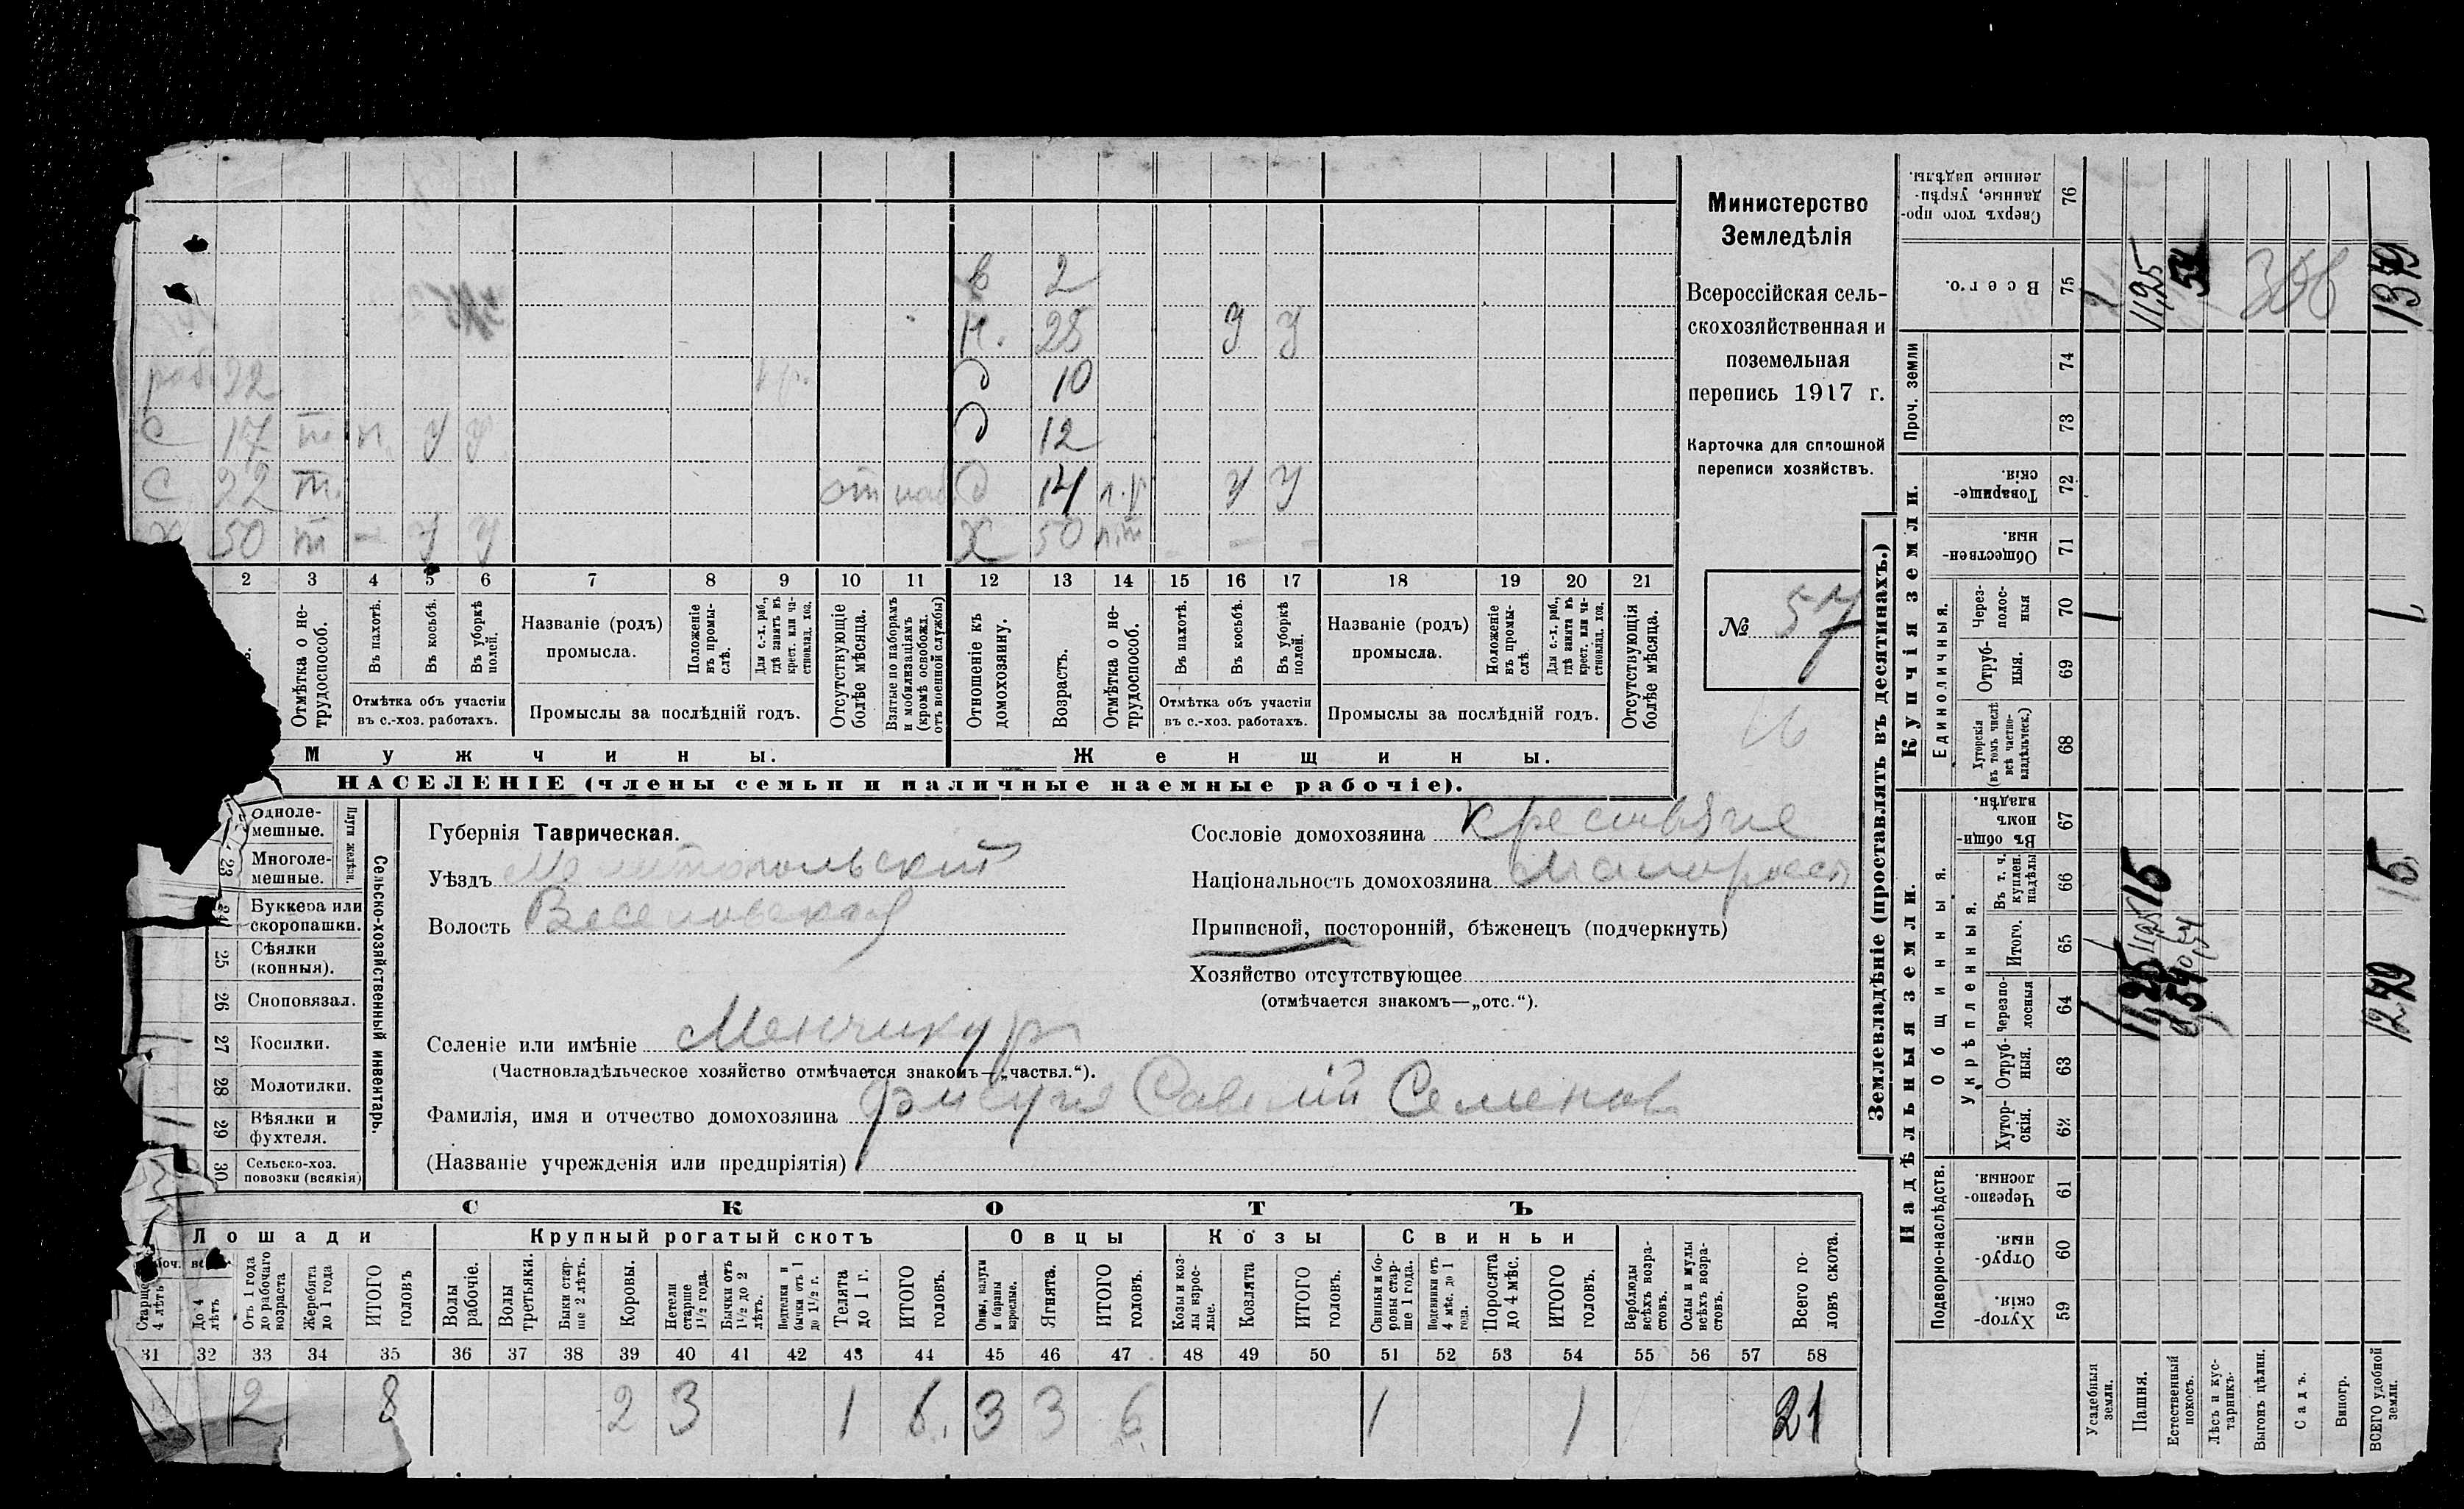 в 2
н. 25 у у
раб. 22 д 10
с 17 т п у у д 12
с 22 т. от наб. д 14 п.р у у
х 50 т - у у х 50 п.т - - -
2 3 4 5 6 7 8 9 10 11 12 13 14 15 16 17 18 19 20 21
Отмѣтка о не-
трудоспособ.
Въ пахотѣ.
Въ косьбѣ.
Въ уборкѣ
полей.
Отмѣтка объ участіи
въ с.-хоз. работахъ.
Названіе (родъ)
промысла.
Положеніе
въ промы-
слѣ.
Для с.-х. раб.,
гдѣ занятъ въ
крест. или ча-
стновлад. хоз.
Промыслы за послѣдній годъ.
Отсутствующіе
болѣе мѣсяца.
Взятые по наборамъ
и мобилизаціямъ
(кромѣ освобожд.
отъ военной службы)
Отношеніе къ
домохозяину.
Возрастъ.
Отмѣтка о не-
трудоспособ.
Въ пахотѣ.
Въ косьбѣ.
Въ уборкѣ
полей.
Отмѣтка объ участіи
въ с.-хоз. работахъ.
Названіе (родъ)
промысла.
Положеніе
въ промы-
слѣ.
Для с.-х. раб.,
гдѣ занята въ
крест. или ча-
стновлад. хоз.
Промыслы за послѣдній годъ.
Отсутствующія
болѣе мѣсяца.
Мужчины.
Женщины.
НАСЕЛЕНІЕ (члены семьи и наличные наемные рабочіе).
Министерство
Земледѣлія
Всероссійская сель-
скохозяйственная и
поземельная
перепись 1917 г.
Карточка для сплошной
переписи хозяйствъ.
№ 57
16
Одноле-
мешные.
Многоле-
мешные.
Плуги желѣзн.
23
24 Буккера или
скоропашки.
25 Сѣялки
(конныя).
26 Сноповязал.
27 Косилки.
28 Молотилки.
29 Вѣялки и
фухтеля.
30 Сельско-хоз.
повозки (всякія)
Сельско-хозяйственный инвентарь.
Губернія Таврическая.
Уѣздъ Мелитопольскій
Волость Веселовская
Сословіе домохозяина крестьяне
Національность домохозяина малоросс
Приписной, посторонній, бѣженецъ (подчеркнуть)
Хозяйство отсутствующее
(отмѣчается знакомъ—„отс.“).
Селеніе или имѣніе Менчикур
(Частновладѣльческое хозяйство отмѣчается знакомъ—„частвл.“).
Фамилія, имя и отчество домохозяина Савелій Семенов
(Названіе учрежденія или предпріятія)
СКОТЪ
Лошади
Крупный рогатый скотъ
Овцы
Козы
Свиньи
Старше
4 лѣтъ
До 4
лѣтъ
Отъ 1 года
до рабочаго
возраста
Жеребята
до 1 года
ИТОГО
головъ
Волы
рабочіе.
Волы
третьяки.
Быки стар-
ше 2 лѣтъ.
Коровы.
Нетели
старше
1½ года.
Бычки отъ
1½ до 2
лѣтъ.
Подтелки и
бычки отъ 1
до 1½ г.
Телята
до 1 г.
ИТОГО
головъ.
Овцы, валухи
и бараны
взрослые.
Ягнята.
ИТОГО
головъ.
Козы и коз-
лы взрос-
лые.
Козлята
ИТОГО
головъ.
Свиньи и бо-
ровы стар-
ше 1 года.
Подсвинки отъ
4 мѣс. до 1
года.
Поросята
до 4 мѣс.
ИТОГО
головъ.
Верблюды
всѣхъ возра-
стовъ.
Ослы и мулы
всѣхъ возра-
стовъ.
Всего го-
ловъ скота.
31 32 33 34 35 36 37 38 39 40 41 42 43 44 45 46 47 48 49 50 51 52 53 54 55 56 57 58
2 8 2 3 1 6. 3 3 6 1 1 21
Землевладѣніе (проставлять въ десятинахъ.)
Надѣльныя земли.
Купчія земли.
Проч. земли
Подворно-наслѣдств.
Общинныя.
Укрѣпленныя.
Единоличныя.
Хутор-
скія. 59
Отруб-
ныя. 60
Черезпо-
лосныя 61
Хутор-
скія. 62
Отруб-
ныя. 63
Черезпо-
лосныя 64
Итого. 65
Въ т. ч.
куплен.
надѣлы 66
Въ общи-
номъ
владѣн. 67
Хуторскія
(въ томъ числѣ
всѣ частно-
владѣльческ.) 68
Отруб-
ныя. 69
Через-
полос-
ныя 70
Обществен-
ныя. 71
Товарище-
скія. 72
73
74
Всего. 75
Сверхъ того про-
данные, укрѣп-
ленные надѣлы. 76
Усадебныя
земли.
1 1
Пашня.
11,25 11,25 15 11,25
Естественный
покосъ.
54
Лѣсъ и кус-
тарникъ.
Выгонъ цѣлин.
Садъ.
Виногр.
ВСЕГО удобной
земли.
1279 15 1, 1379